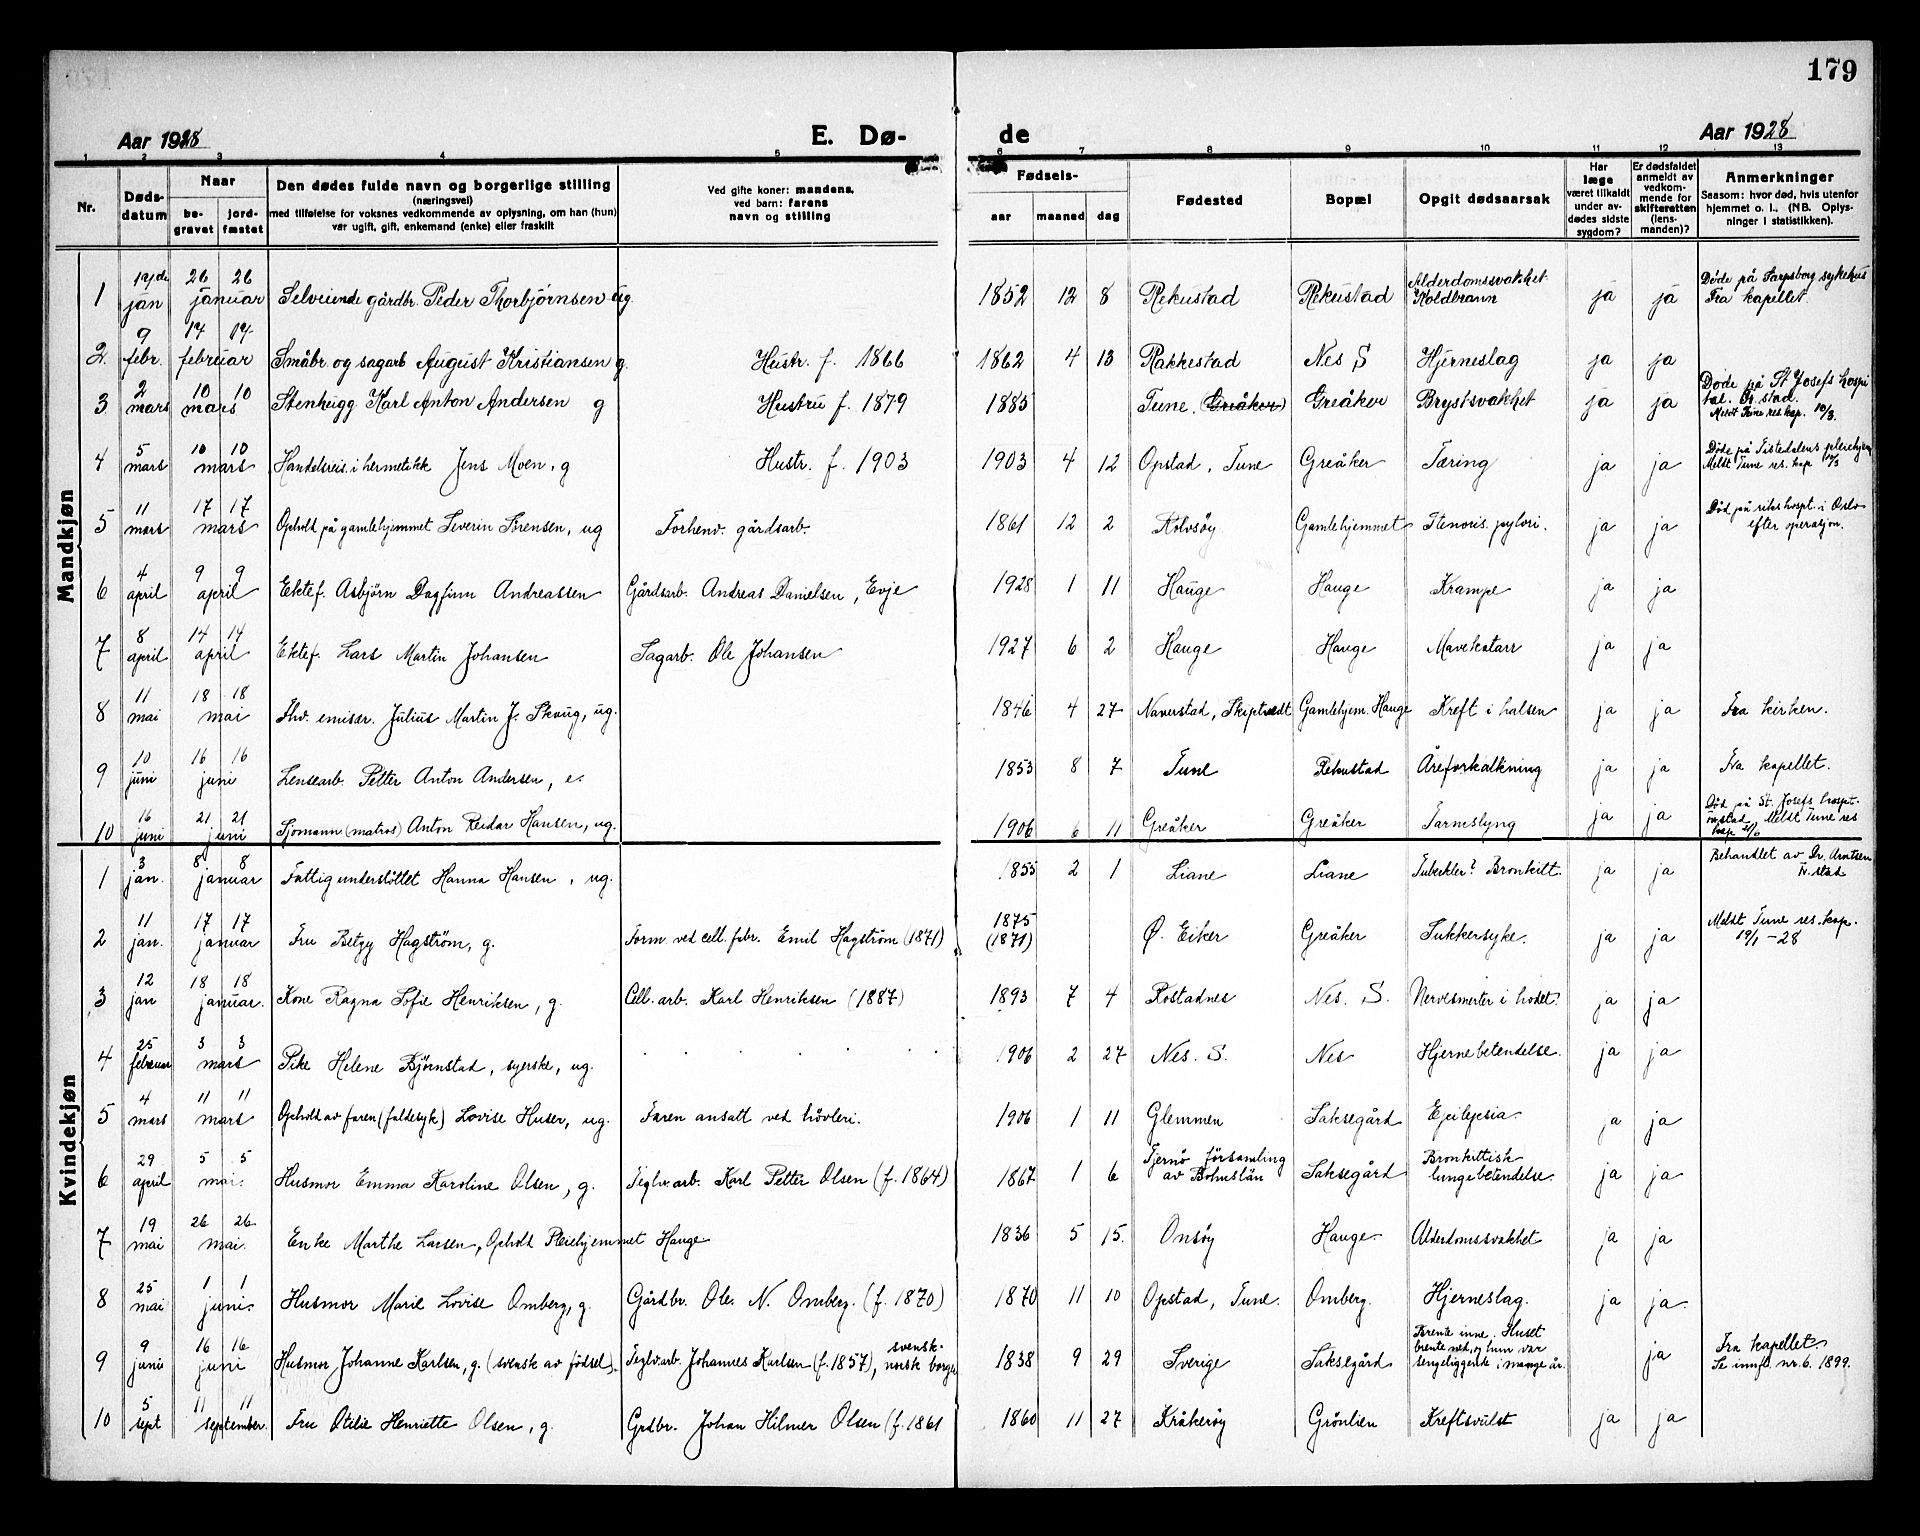 179
Aar 1928
E. Dø-
de
Aar 1928
1 2 3 4 5 6 7 8 9 10 11 12 13
Nr.
Døds-
datum
Naar
be-
gravet
jord-
fæstet
Den dødes fulde navn og borgerlige stilling
(næringsvei)
med tilføielse for voksnes vedkommende av oplysning, om han (hun)
var ugift, gift, enkemand (enke) eller fraskilt
Ved gifte koner: mandens,
ved barn: farens
navn og stilling
Fødsels-
aar maaned dag
Fødested
Bopæl
Opgit dødsaarsak
Har
læge
været tilkaldt
under av-
dødes sidste
sygdom?
Er dødsfaldet
anmeldt av
vedkom-
mende for
skifteretten
(lens-
manden)?
Anmerkninger
Saasom: hvor død, hvis utenfor
hjemmet o. l., (NB. Oplys-
ninger i statistikken).
Mandkjøn
1 19de jan 26 26 januar Selveiende gårdbr. Peder Thorbjørnsen ug. 1852 12 8 Rekustad Rekustad Alderdomssvakhet Koldbrann ja ja Døde på Sarpsborg sykehus Fra kapellet.
2. 9 febr. 14 14 februar Småbr og sagarb August Kristiansen g. Hustr. f. 1866 1862 4 13 Rakkestad Nes S Hjerneslag ja ja
3 2 mars 10 10 mars Stenhugg Karl Anton Andersen g Hustru f. 1879 1885 Tune. (Greåker) Greåker Brystsvakhet ja ja Døde på St Josefs hospital. Fr.stad. Meldt Tune res. kap. 10/3.
4 5 mars 10 10 mars Handelsreis. i hermetikk Jens Moen, g Hustr. f. 1903 1903 4 12 Opstad, Tune Greåker Tæring ja ja Døde på Tistedalens pleiehjem Meldt Tune res. kap 12/3
5 11 mars 17 17 mars Ophold på gamlehjemmet Severin Sørensen, ug Forhenv. gårdsarb. 1861 12 2 Rolvsøy Gamlehjemmet Stenoris. pylori. ja ja Død på rikshospt. i Oslo efter operasjon.
6 4 april 9 9 april Ektef. Asbjörn Dagfinn Andreassen Gårdsarb. Andreas Danielsen, Evje 1928 1 11 Hauge Hauge Krampe ja ja
7 8 april 14 14 april Ektef. Lars Martin Johansen Sagarb. Ole Johansen 1927 6 2 Hauge Hauge Mavekatarr ja ja
8 11 mai 18 18 mai Fhv. emissr. Julius Martin J. Skaug, ug. 1846 4 27 Naverstad, Skiptvedt Gamlehjem. Hauge Kreft i halsen ja ja Fra kirken.
9 10 juni 16 16 juni Lensearb. Petter Anton Andersen, e. 1853 8 7 Tune Rekustad Åreforkalkning ja ja Fra kapellet.
10 16 juni 21 21 juni Sjømann (matros) Anton Reidar Hansen, ug. 1906 6 11 Greåker Greåker Tarmslyng ja ja Død på St. Josefs hospt. Fr.stad Meldt Tune res kap
Kvindekjøn
1 3 jan. 8 8 januar Fattigunderstöttet Hanna Hansen, ug. 1855 2 1 Liane Liane Tuberkler? Bronkitt. ja ja Behandlet av Dr. Arntsen Fr.stad
2 11 jan. 17 17 januar Fru Betzy Hagström, g. Form. ved cell. fabr. Emil Hagström (1871) 1875 (1871) Ø. Eiker Greåker Sukkersyke. ja ja Meldt Tune res. kap. 19/1 - 28
3 12 jan 18 18 januar. Kone Ragna Sofie Henriksen, g. Cell. arb. Karl Henriksen (1887) 1893 7 4 Rostadnes Nes. S. Nervesmerter i hodet. ja ja
4 25 februar 3 3 mars Pike Helene Bjørnstad, syerske, ug. 1906 2 27 Nes. S. Nes Hjernebetendelse. ja ja
5 4 mars 11 11 mars Ophold av faren (faldesyk) Lovise Huser, ug. Faren ansatt ved hövleri. 1906 1 11 Glemmen Saksegård Epilepsia. ja ja
6 29 april 5 5 mai. Husmor Emma Karoline Olsen, g. Teglv.arb. Karl Petter Olsen (f. 1864) 1867 1 6 Tjernö församling av Bohuslän Saksegård Bronkittisk lungebetendelse. ja ja
7 19 mai 26 26 mai. Enke Marthe Larsen, Ophold Pleiehjemmet Hauge 1836 5 15. Onsøy Hauge. Alderdomssvakhet ja ja
8 25 mai 1 1 juni. Husmor Marie Lovise Omberg, g. Gårdbr. Ole N. Omberg. (f. 1870) 1870 11 10 Opstad, Tune. Omberg. Hjerneslag. ja ja.
9 9 juni 16 16 juni Husmor Johanne Karlsen, g. (svensk av födsel). Teglv.arb. Johannes Karlsen (f. 1857), svensk-norsk borger 1838 9 29 Sverige Saksegård Brente inne. Huset brente ned, og hun var sengeliggende i mange år. ja Fra kapellet. Se innfl. nr. 6. 1899.
10 5 sept 11 11 september. Fru Otilie Henriette Olsen, g. Grdbr. Johan Hilmer Olsen (f. 1861 1860 11 27 Kråkerøy Grönlien Kreftsvülst ja ja